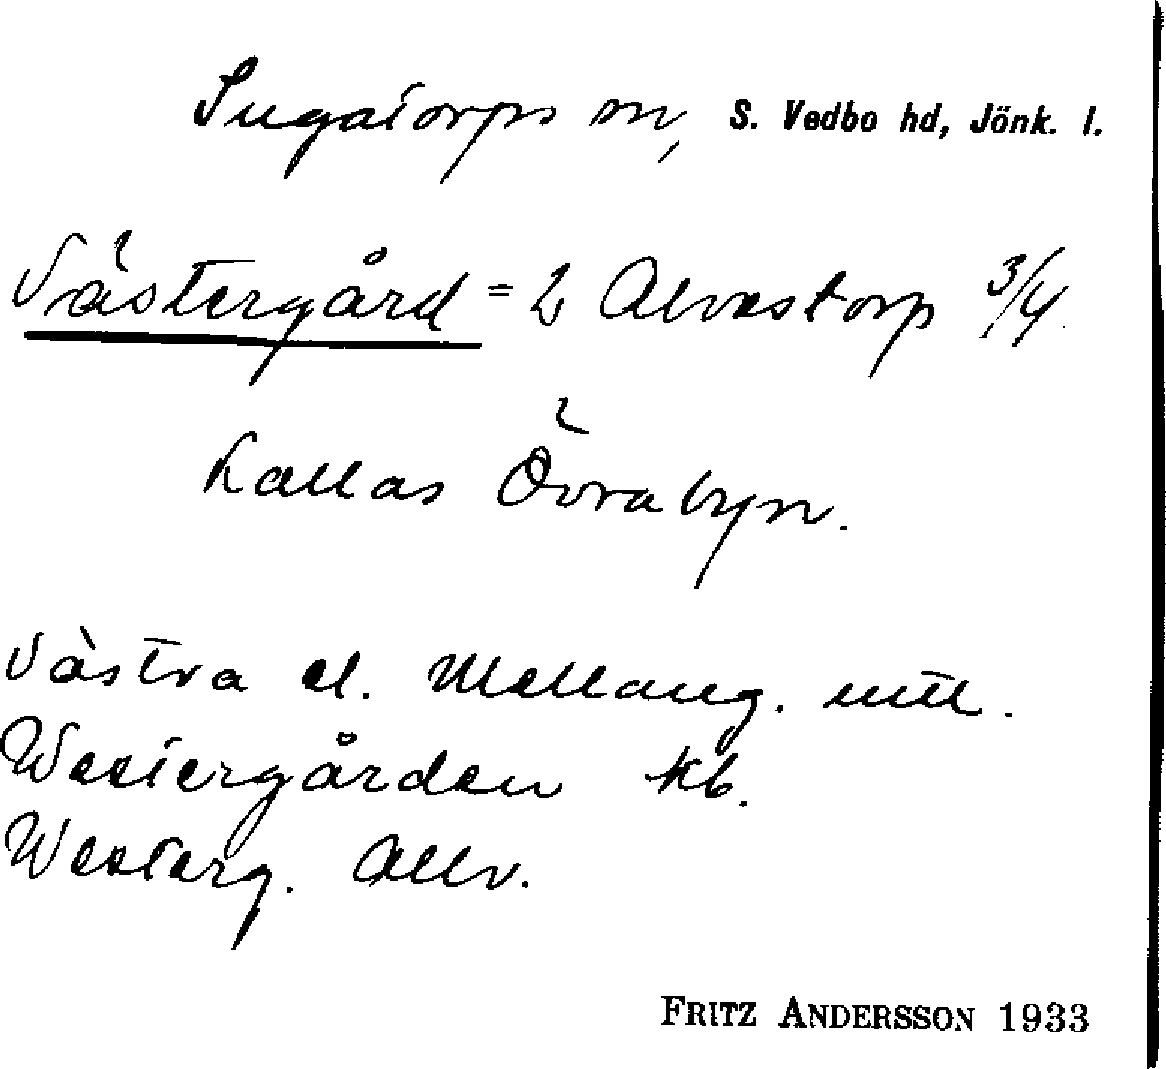 Ingatorps sn, S. Vedbo hd, Jönk. l.
Västergård = 2 Alvestorp 3/4.
Kallas Övrabyn.
Västra el. Mellang. uttl.
Westergården kb.
Westerg. Allv.
FRITZ ANDERSSON 1933